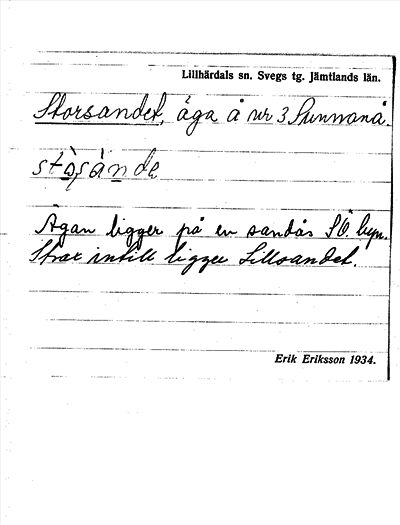 Lillhärdals sn. Svegs tg. Jämtlands län.
Storsandet, äga å nr 3 Sunnanå.
Ägan ligger på en sandås SÖ. byn.
Strax intill ligger Lillsandet.
Erik Eriksson 1934.